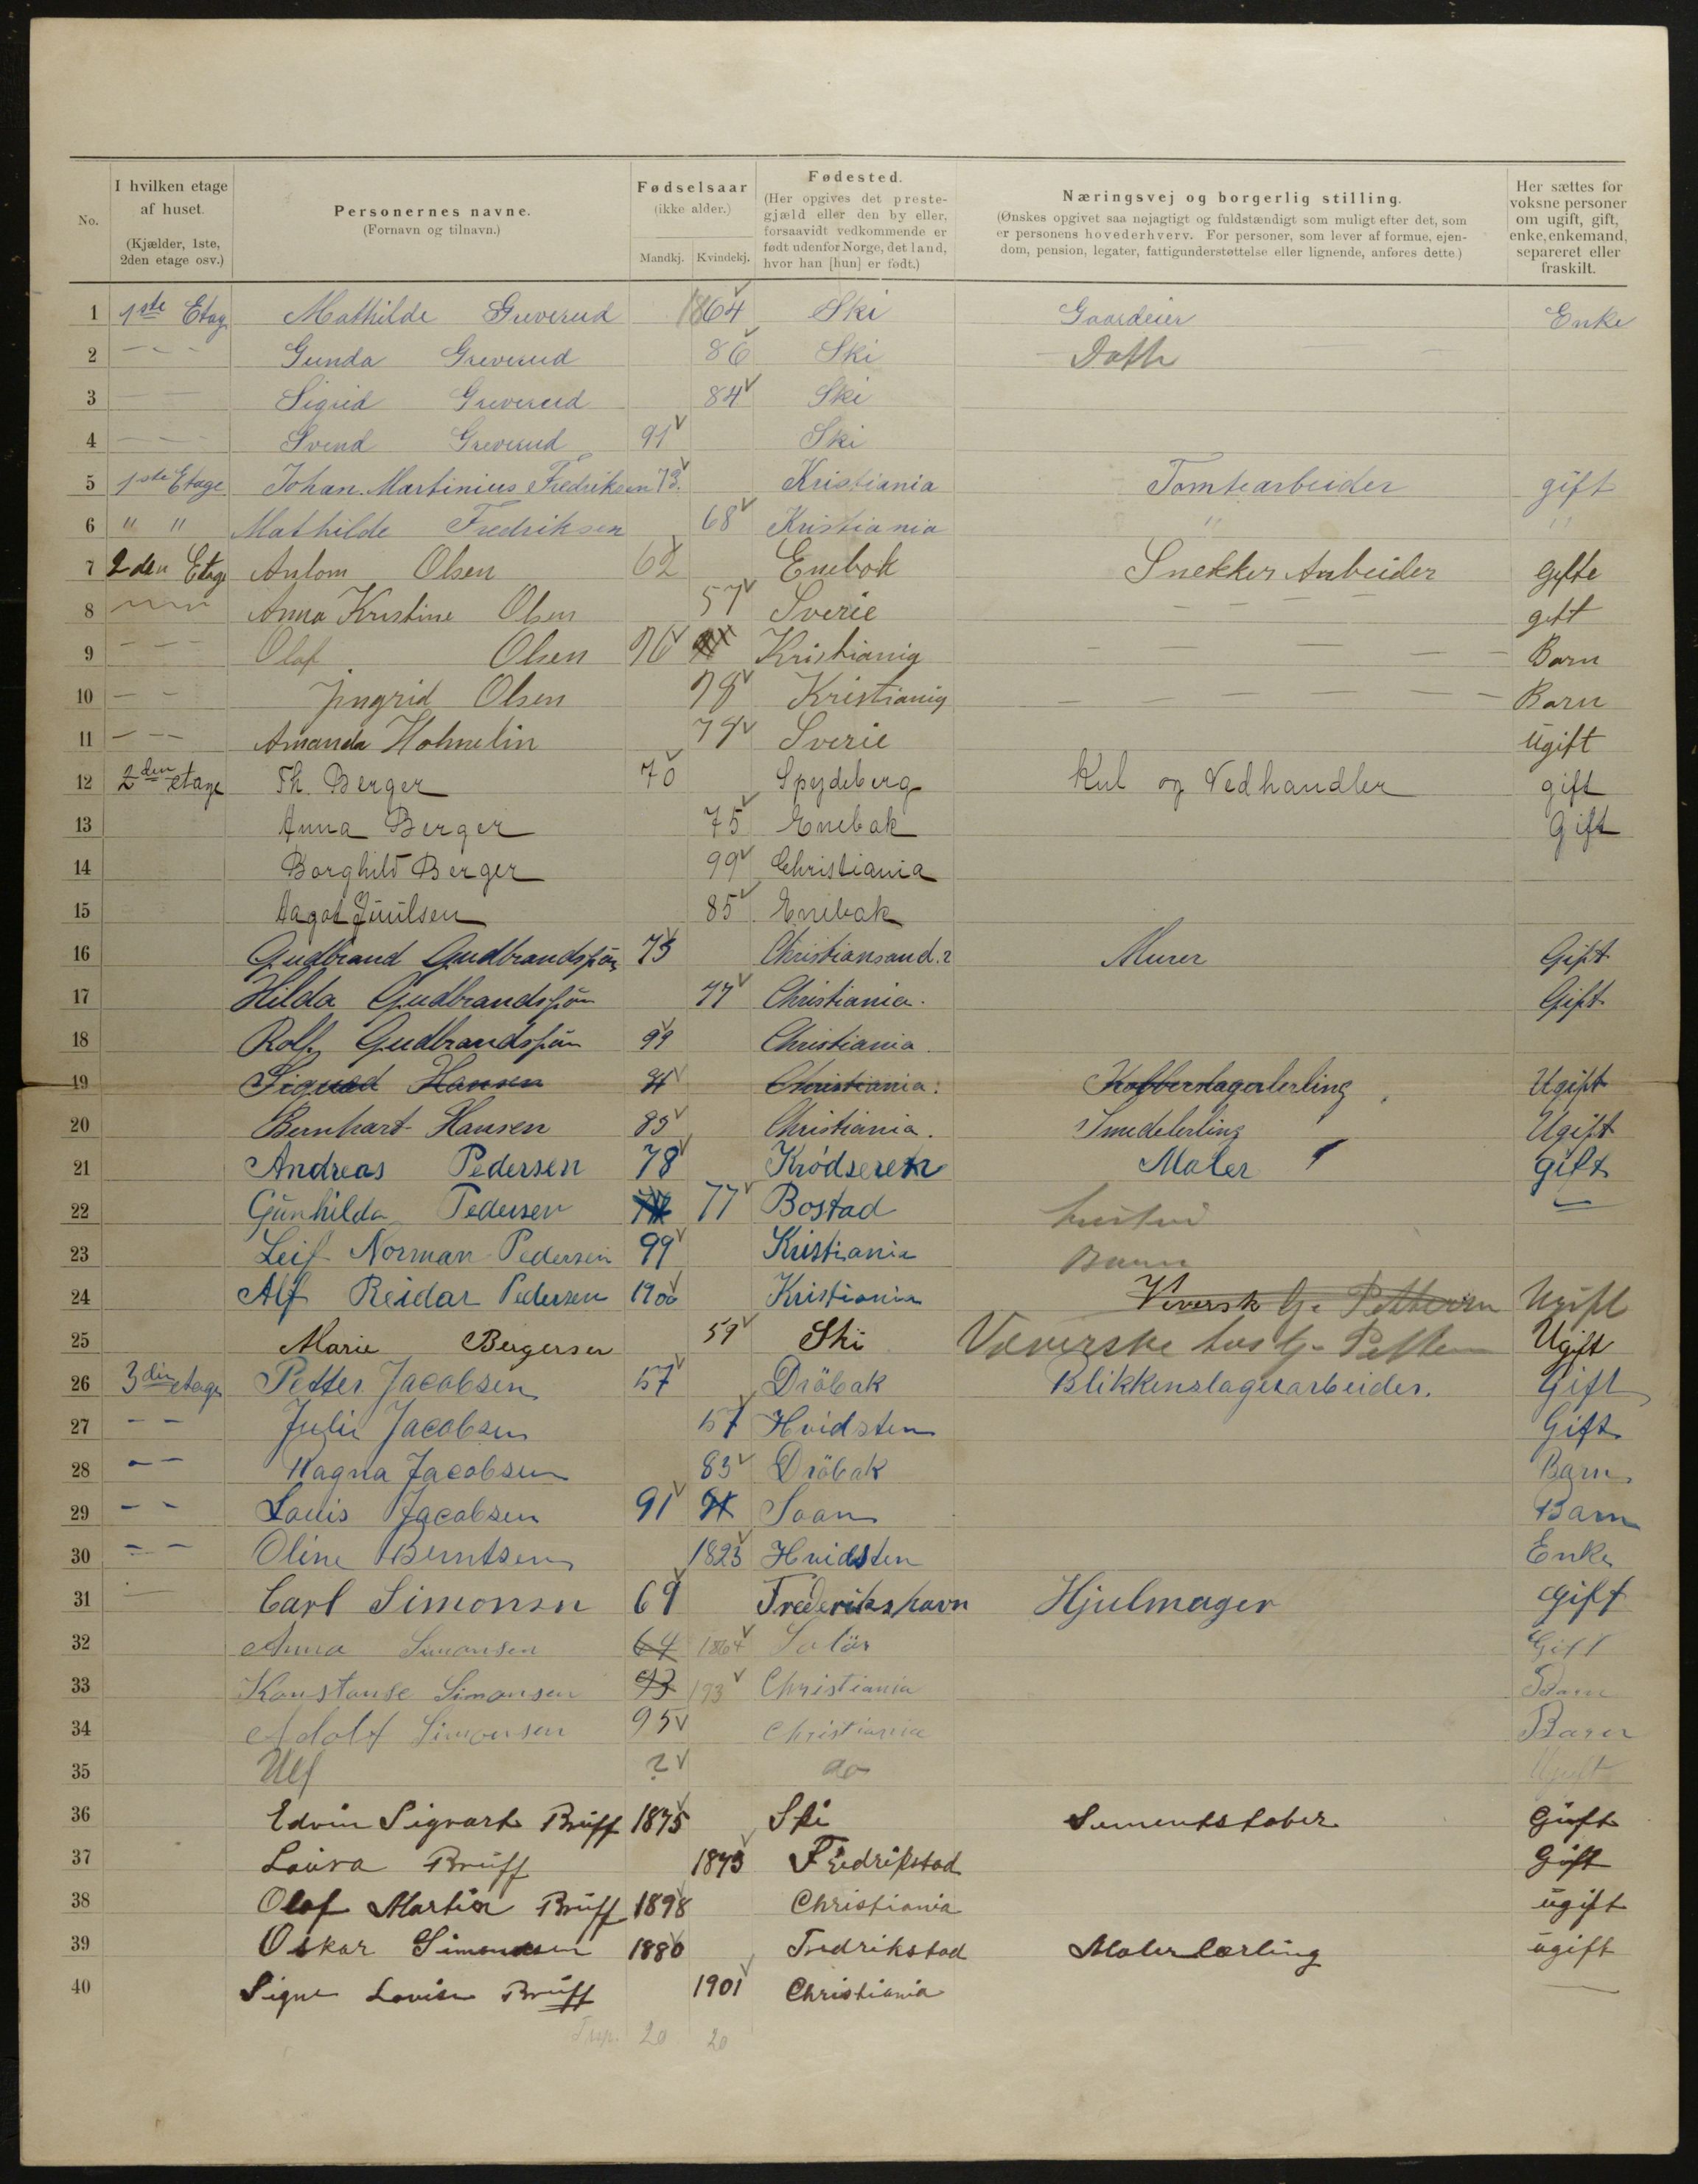 No.
I hvilken etage af huset. (Kjælder, 1ste, 2den etage osv.)
Personernes navne. (Fornavn og tilnavn.)
Fødselsaar (ikke alder.) Mandkj. Kvindekj.
Fødested. (Her opgives det prestegjæld eller den by eller, forsaavidt vedkommende er født udenfor Norge, det land, hvor han [hun] er født.)
Næringsvej og borgerlig stilling. (Ønskes opgivet saa nøjagtigt og fuldstændigt som muligt efter det, som er personens hovederhverv. For personer, som lever af formue, ejendom, pension, legater, fattigunderstøttelse eller lignende, anføres dette.)
Her sættes for voksne personer om ugift, gift, enke, enkemand, separeret eller fraskilt.
1 1ste Etag Mathilde Greverud 1864 Ski Gaardeier Enke
2 - - - Gunda Greverud 86 Ski Dattr
3 - - Sigrid Greverud 84 Ski
4 - - - Svend Greverud 91 Ski
5 1ste Etage Johan. Martinius Fredriksen 73. Kristiania Tomtearbeider gift
6 " " Mathilde Fredriksen 68 Kristiania " "
7 2den Etage Antom Olsen 62 Enebak Snekker Arbeider Gifte
8 - - - Anna Kristine Olsen 57 Sverie - - - - gift
9 - - - Olaf Olsen 96 Kristiania - - - - - Barn
10 - - Jingrid Olsen 98 Kristiania - - - - - Barn
11 - - - Amanda Holmelin 79 Sverie Ugift
12 2den etage Th. Berger 70 Spydeberg Kul og Vedhandler gift
13 Anna Berger 75 Enebak Gift
14 Borghild Berger 99 Christiania
15 Aagot Juulsen 85 Enebak
16 Gudbrand Gudbrandssøn 75 Christiansand.? Murer Gift
17 Hilda Gudbrandssøn 77 Christiania. Gift
18 Rolf Gudbrandssøn 99 Christiania.
19 Sigurd Hansen Christiania. Kobberslagerlerling Ugift
20 Bernhart Hansen 85 Christiania. Smedelerling Ugift
21 Andreas Pedersen 78 Krødseren Maler gift
22 Gunhilda Pedersen 77 Bostad hustru -
23 Leif Norman Pedersen 99 Kristiania Barn
24 Alf Reidar Pedersen 1900 Kristiania Veversk G. Pettersen Ugift
25 Marie Bergersen 59 Ski Væverske hos G. Petter Ugift
26 3die etage Petter Jacobsen 57 Drøbak Blikkenslagerarbeider. Gift
27 - - Julie Jacobsen 57 Hvidsten Gift
28 - - Ragna Jacobsen 83 Drøbak Barn
29 - - Louis Jacobsen 91 91 Soon Barn
30 - - Oline Berntsen 1823 Hvidsten Enke
31 - Carl Simonsn 69 Frederikshavn Hjulmager gift
32 Anna Simonsen 64 1864 Solør Gift
33 Konstanse Simonsen 93 193 Christiania Barn
34 Adolf Simonsen 95 Christiania Baren
35 Ulf ? do Ugift
36 Edvin Sigvart Brüff 1875 Ski Sementstøber Gift
37 Laura Brüff 1873 Fredrikstad Gift
38 Olaf Martin Brüff 1898 Christiania ugift
39 Oskar Simensen 1880 Fredrikstad Malerlærling ugift
40 Signe Lovise Brüff 1901 Christiania -
20 20